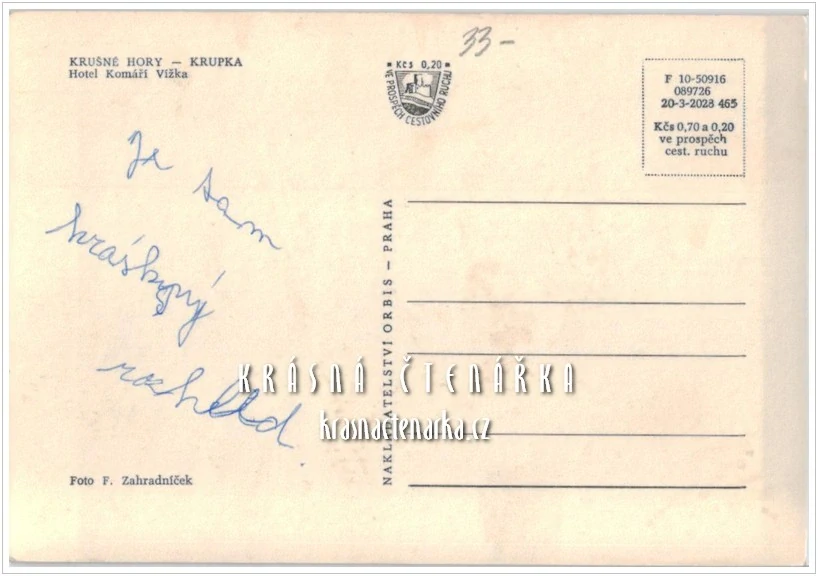 33-
KRUŠNÉ HORY — KRUPKA
Hotel Komáří Vížka
Kčs 0,20
VE PROSPĚCH CESTOVNÍHO RUCHU
F 10-50916
089726
20-3-2028 465
Kčs 0,70 a 0,20
ve prospěch
cest. ruchu
Je tam
krásný
rozhled.
NAKLADATELSTVÍ ORBIS — PRAHA
KRÁSNÁ ČTENÁŘKA
krasnactenarka.cz
Foto F. Zahradníček